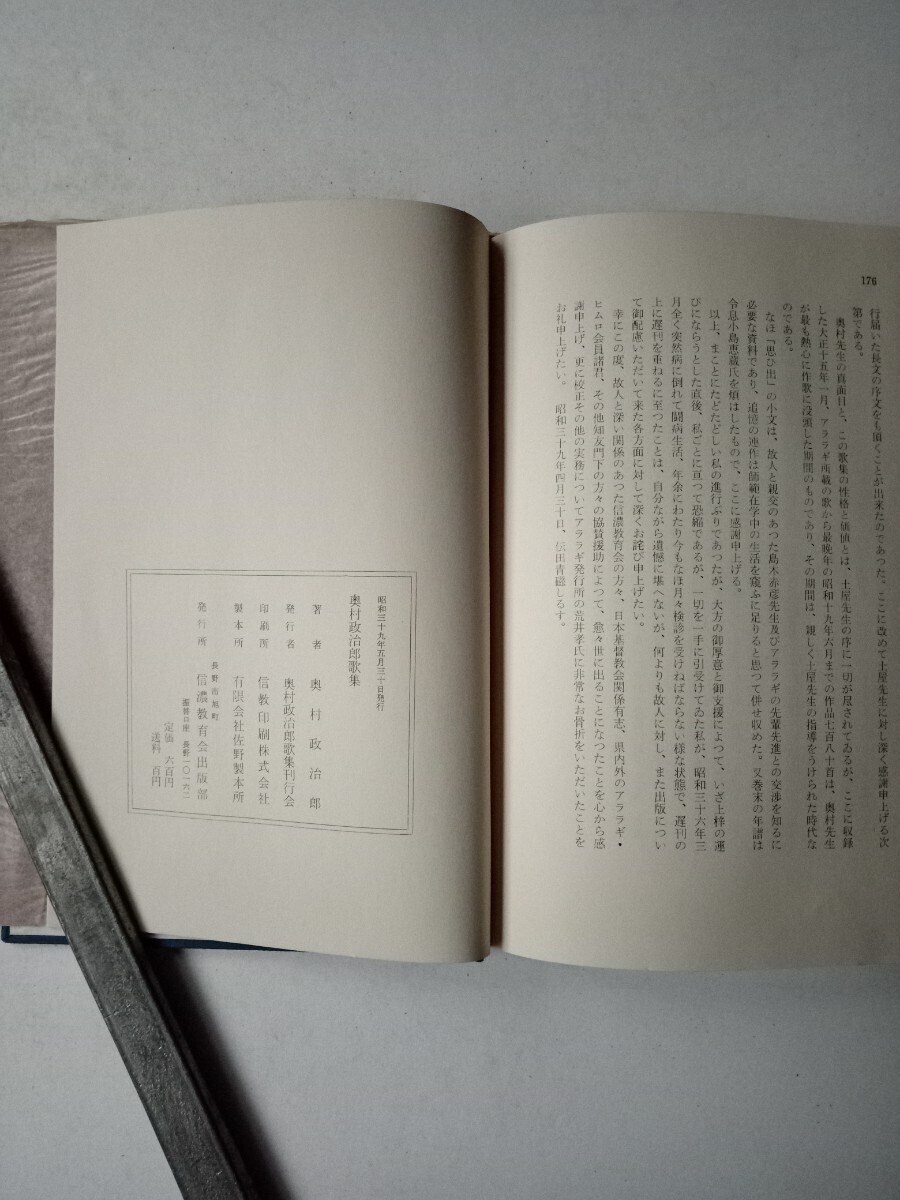 176
行届いた長文の序文をも頂くことが出来たのであつた。ここに改めて土屋先生に対し深く感謝申上げる次
第である。
奥村先生の真面目と、この歌集の性格と価値とは、土屋先生の序に一切が尽されてゐるが、ここに収録
した大正十五年一月、アララギ所載の歌から最晩年の昭和十九年六月までの作品七百八十首は、奥村先生
が最も熱心に作歌に没頭した期間のものであり、その期間は、親しく土屋先生の指導をうけられた時代な
のである。
なほ「思ひ出」の小文は、故人と親交のあつた島木赤彦先生及びアララギの先輩先進との交渉を知るに
必要な資料であり、追憶の連作は師範在学中の生活を窺ふに足りると思つて併せ収めた。又巻末の年譜は
令息小島恵蔵氏を煩はしたもので、ここに感謝申上げる。
以上、まことにたどたどしい私の進行ぶりであつたが、大方の御厚意と御支援によつて、いざ上梓の運
びにならうとした直後、私ごとに亘つて恐縮であるが、一切を一手に引受けてゐた私が、昭和三十六年三
月全く突然病に倒れて闘病生活、年余にわたり今もなほ月々検診を受けねばならない様な状態で、遅刊の
上に遅刊を重ねるに至つたことは、自分ながら遺憾に堪へないが、何よりも故人に対し、また出版につい
て御配慮いただいて来た各方面に対して深くお詫び申上げたい。
幸にこの度、故人と深い関係のあつた信濃教育会の方々、日本基督教会関係有志、県内外のアララギ・
ヒムロ会員諸君、その他知友門下の方々の協賛援助によつて、愈々世に出ることになつたことを心から感
謝申上げ、更に校正その他の実務についてアララギ発行所の荒井孝氏に非常なお骨折をいただいたことを
お礼申上げたい。 昭和三十九年四月三十日、伝田青磁しるす。
昭和三十九年五月三十日発行
奥村政治郎歌集
著者 奥村政治郎
発行者 奥村政治郎歌集刊行会
印刷所 信教印刷株式会社
製本所 有限会社佐野製本所
発行所 長野市旭町 信濃教育会出版部
振替口座 長野一〇一六二
定価 六百円
送料 百円